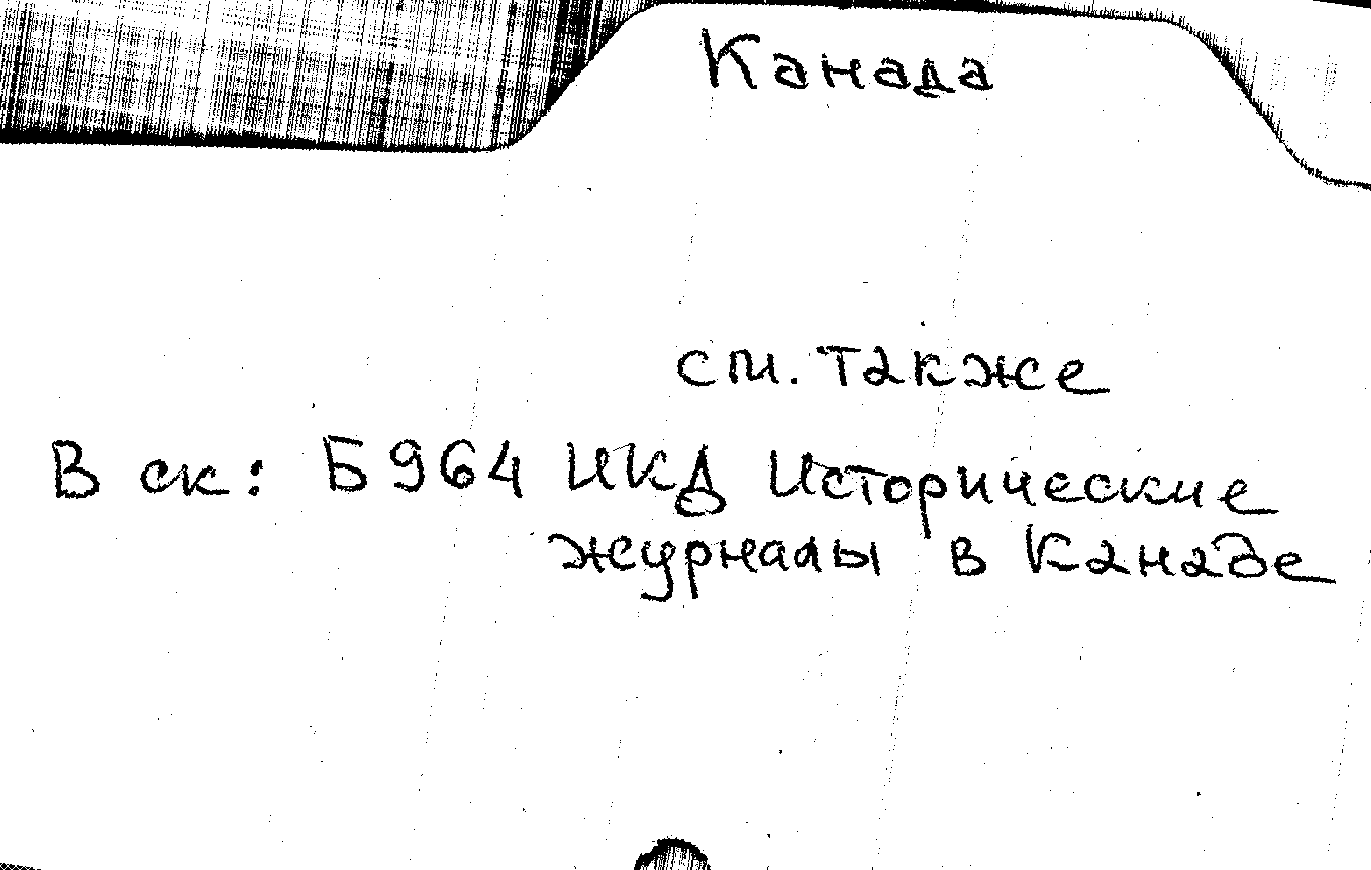 Канада
см. также
В ск: Б964 ИКД Исторические
журналы в Канаде